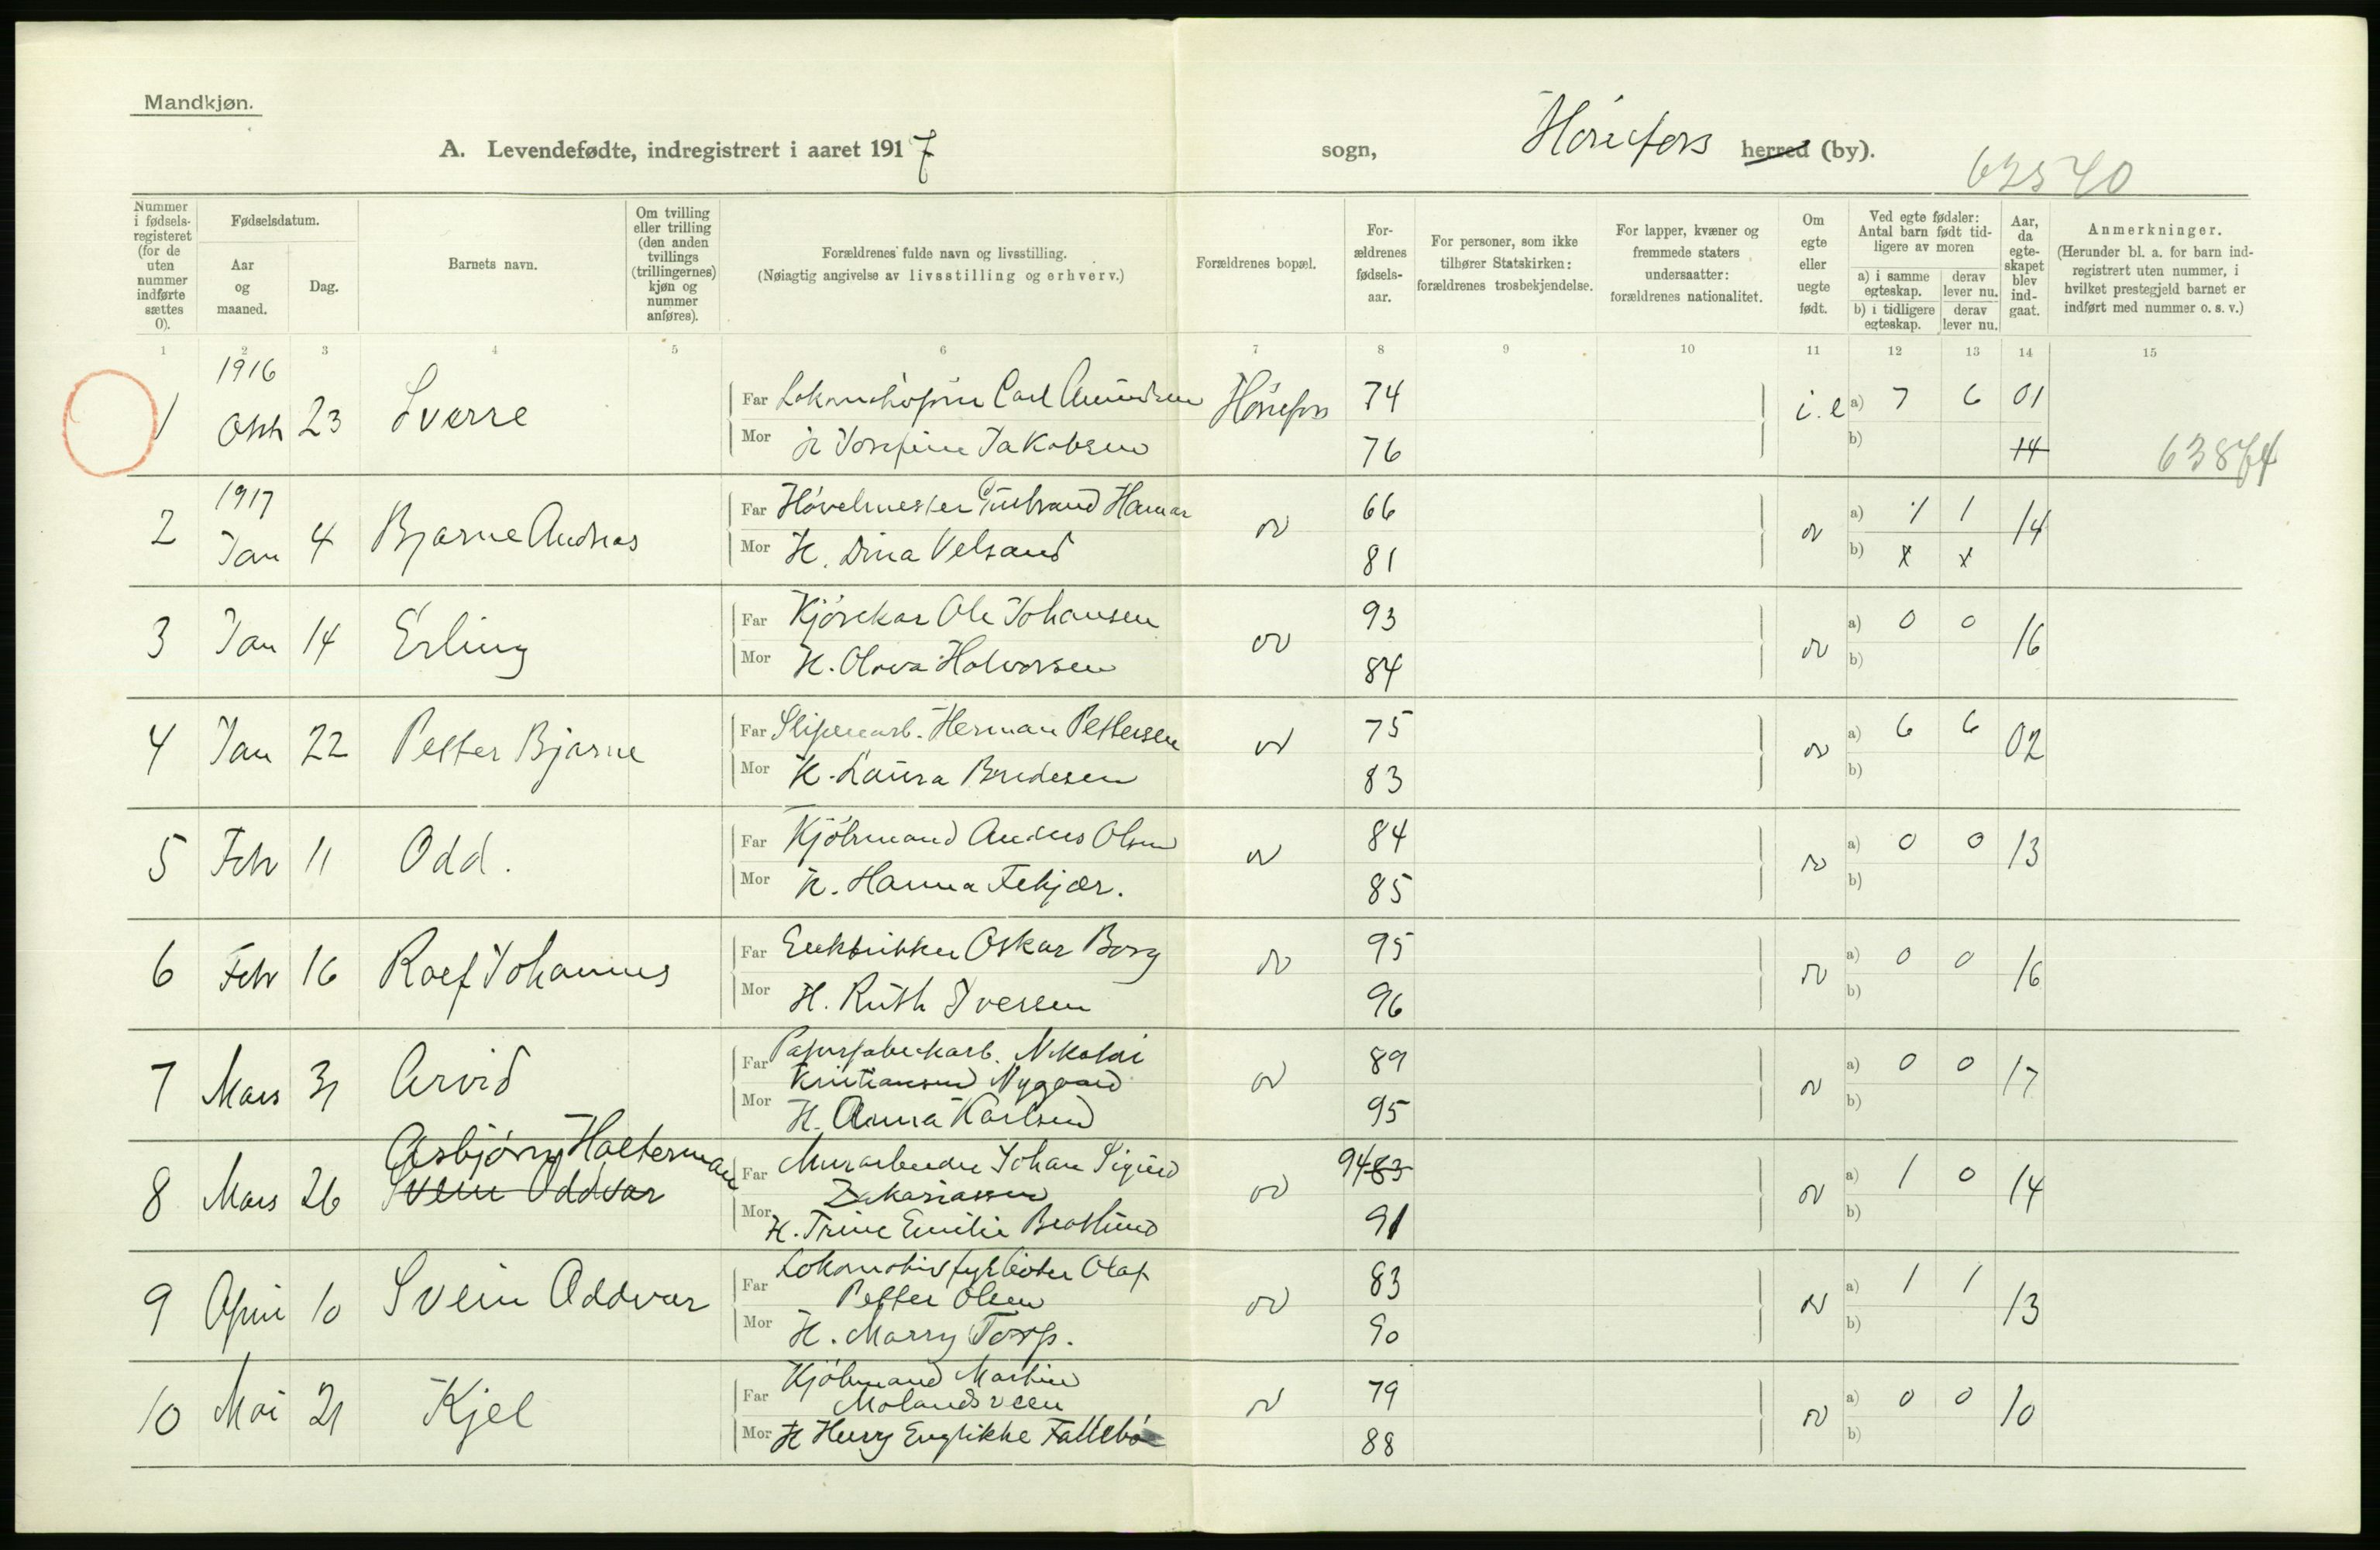 Mandkjøn.
A. Levendefødte, indregistrert i aaret 1917
sogn, Hønefoss herred (by).
63540
Nummer i fødsels-registeret (for de uten nummer indførte sættes 0).
Fødselsdatum.
Aar og maaned.
Dag.
Barnets navn.
Om tvilling eller trilling (den anden tvillings (trillingernes) kjøn og nummer anføres).
Forældrenes fulde navn og livsstilling.
(Nøiagtig angivelse av livsstilling og erhverv.)
Forældrenes bopæl.
For-ældrenes fødsels-aar.
For personer, som ikke tilhører Statskirken: forældrenes trosbekjendelse.
For lapper, kvæner og fremmede staters undersaatter: forældrenes nationalitet.
Om egte eller uegte født.
Ved egte fødsler: Antal barn født tid-ligere av moren
a) i samme egteskap. derav lever nu.
b) i tidligere egteskap. derav lever nu.
Aar, da egte-skapet blev ind-gaat.
Anmerkninger.
(Herunder bl. a. for barn ind-registrert uten nummer, i hvilket prestegjeld barnet er indført med nummer o. s. v.)
1 2 3 4 5 6 7 8 9 10 11 12 13 14 15
1916
1 Okt 23 Sverre Far Carl Amundsen Hønefoss 74 i.e a) 7 6 01
Mor Josefine Jakobsen 76 b) 14
63874
1917
2 Jan 4 Bjarne Andreas Far Høvelmester Gulbrand Hamar 66 a) 1 1 14
Mor H. Dina Velsand 81 b) x x
3 Jan 14 Erling Far Kjørekar Ole Johansen 93 a) 0 0 16
Mor H. Olava Halvorsen 84 b)
4 Jan 22 Petter Bjarne Far Sliperiarb. Herman Pettersen 75 a) 6 6 02
Mor H. Laura Bredesen 83 b)
5 Feb 11 Odd. Far Kjøbmand Anders Olsen 84 a) 0 0 13
Mor H. Hanna Fekjær. 85 b)
6 Feb Rolf Johannes Far Elektriker Oskar Borg 95 a) 0 0 16
16 Mor H. Ruth Iversen 96 b)
7 Mars 31 Arvid Far Papirfabrikarb. Nikolai 89 a) 0 0 17
Kristiansen Nygaard
Mor H. Anna Karlsen 95 b)
Asbjørn Halterman
8 Mars 26 Svein Oddvar Far Murarbeider Johan Sigurd 94 83 a) 1 0 14
Zakariassen
Mor H. Trine Emilie Braatlund 91 b)
9 April 10 Svein Oddvar Far Lokomotivfyrbøter Olaf 83 a) 1 1 13
Petter Olsen
Mor H. Marry Torp. 90 b)
10 Mai 21 Kjel Far Kjøbmand Martin 79 a) 0 0 10
Molandsveen
Mor H Englikke Fallebø 88 b)